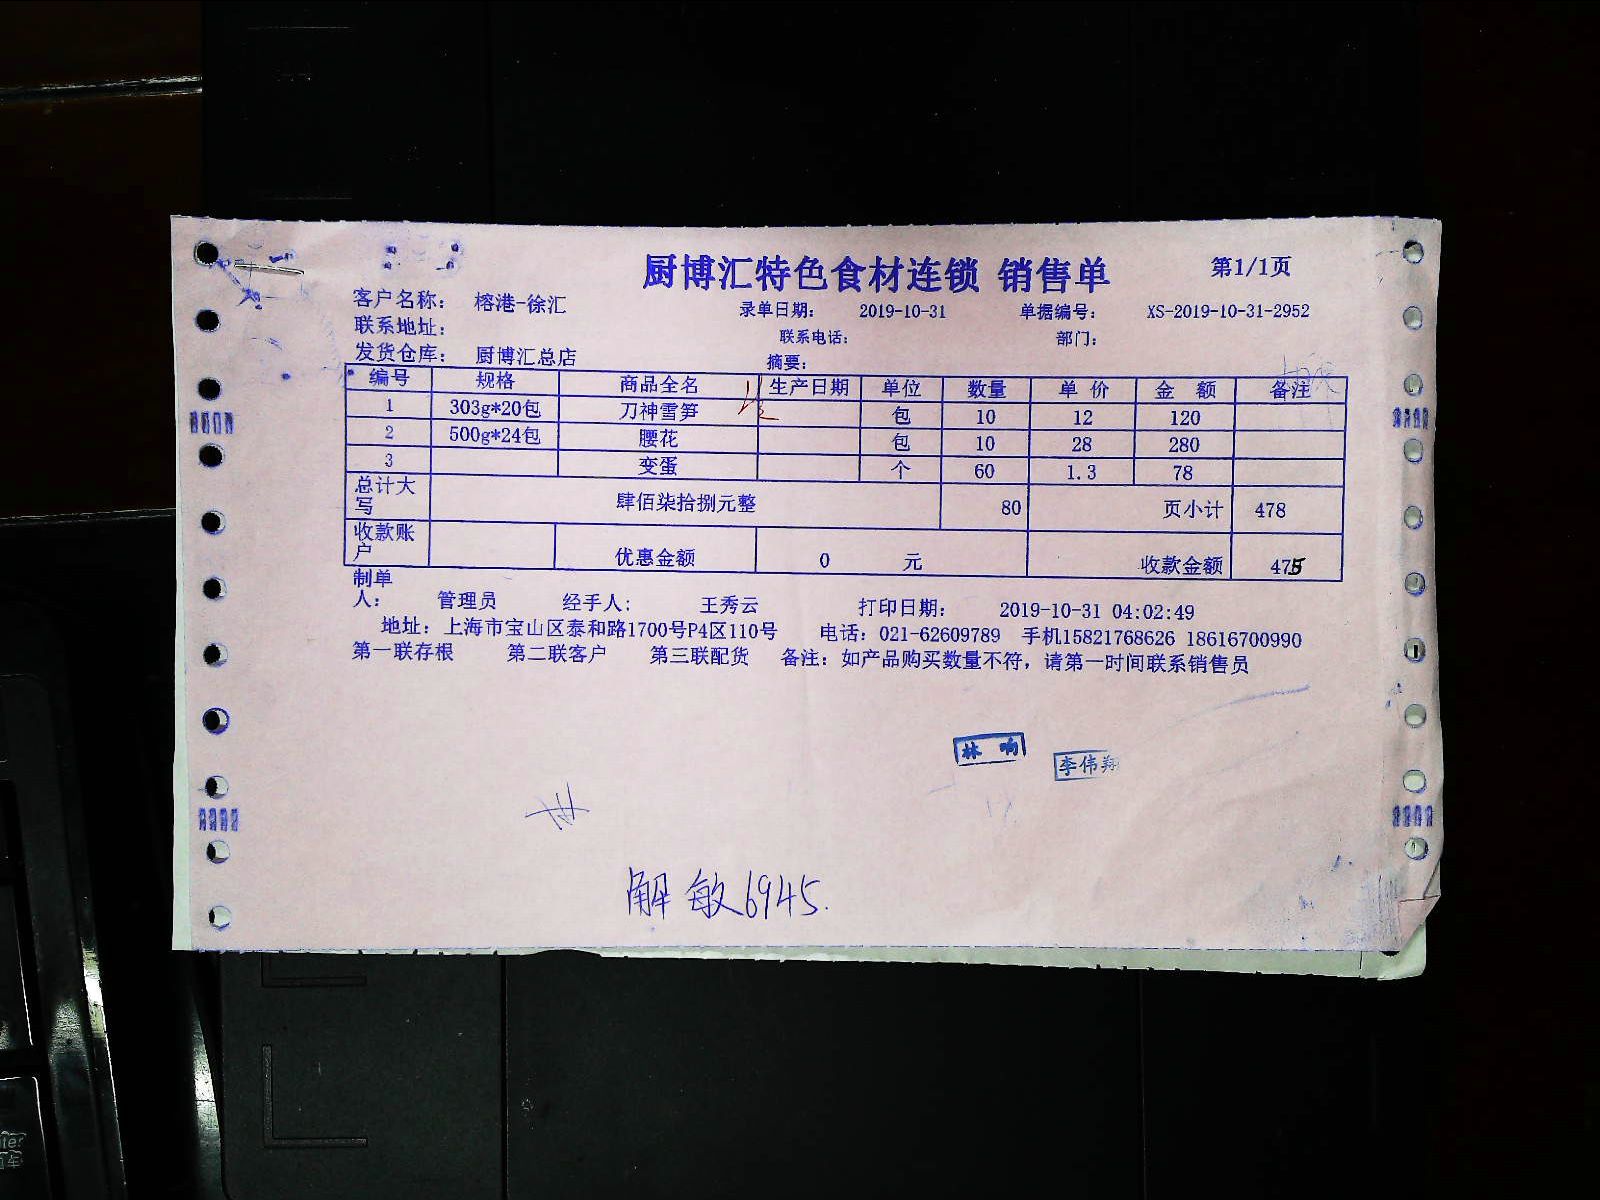 厨博汇特色食材连锁 销售单 第1/1页
客户名称： 榕港-徐汇 录单日期： 2019-10-31 单据编号： XS-2019-10-31-2952
联系地址： 联系电话： 部门：
发货仓库： 厨博汇总店 摘要：
编号 规格 商品全名 生产日期 单位 数量 单 价 金 额 备注
1 303g*20包 刀神雪笋 包 10 12 120
2 500g*24包 腰花 包 10 28 280
3 变蛋 个 60 1.3 78
总计大写 肆佰柒拾捌元整 80 页小计 478
收款账户 优惠金额 0 元 收款金额 475
制单人： 管理员 经手人： 王秀云 打印日期： 2019-10-31 04:02:49
地址：上海市宝山区泰和路1700号P4区110号 电话：021-62609789 手机15821768626 18616700990
第一联存根 第二联客户 第三联配货 备注：如产品购买数量不符，请第一时间联系销售员
林 响 李伟翔
解敏6945.